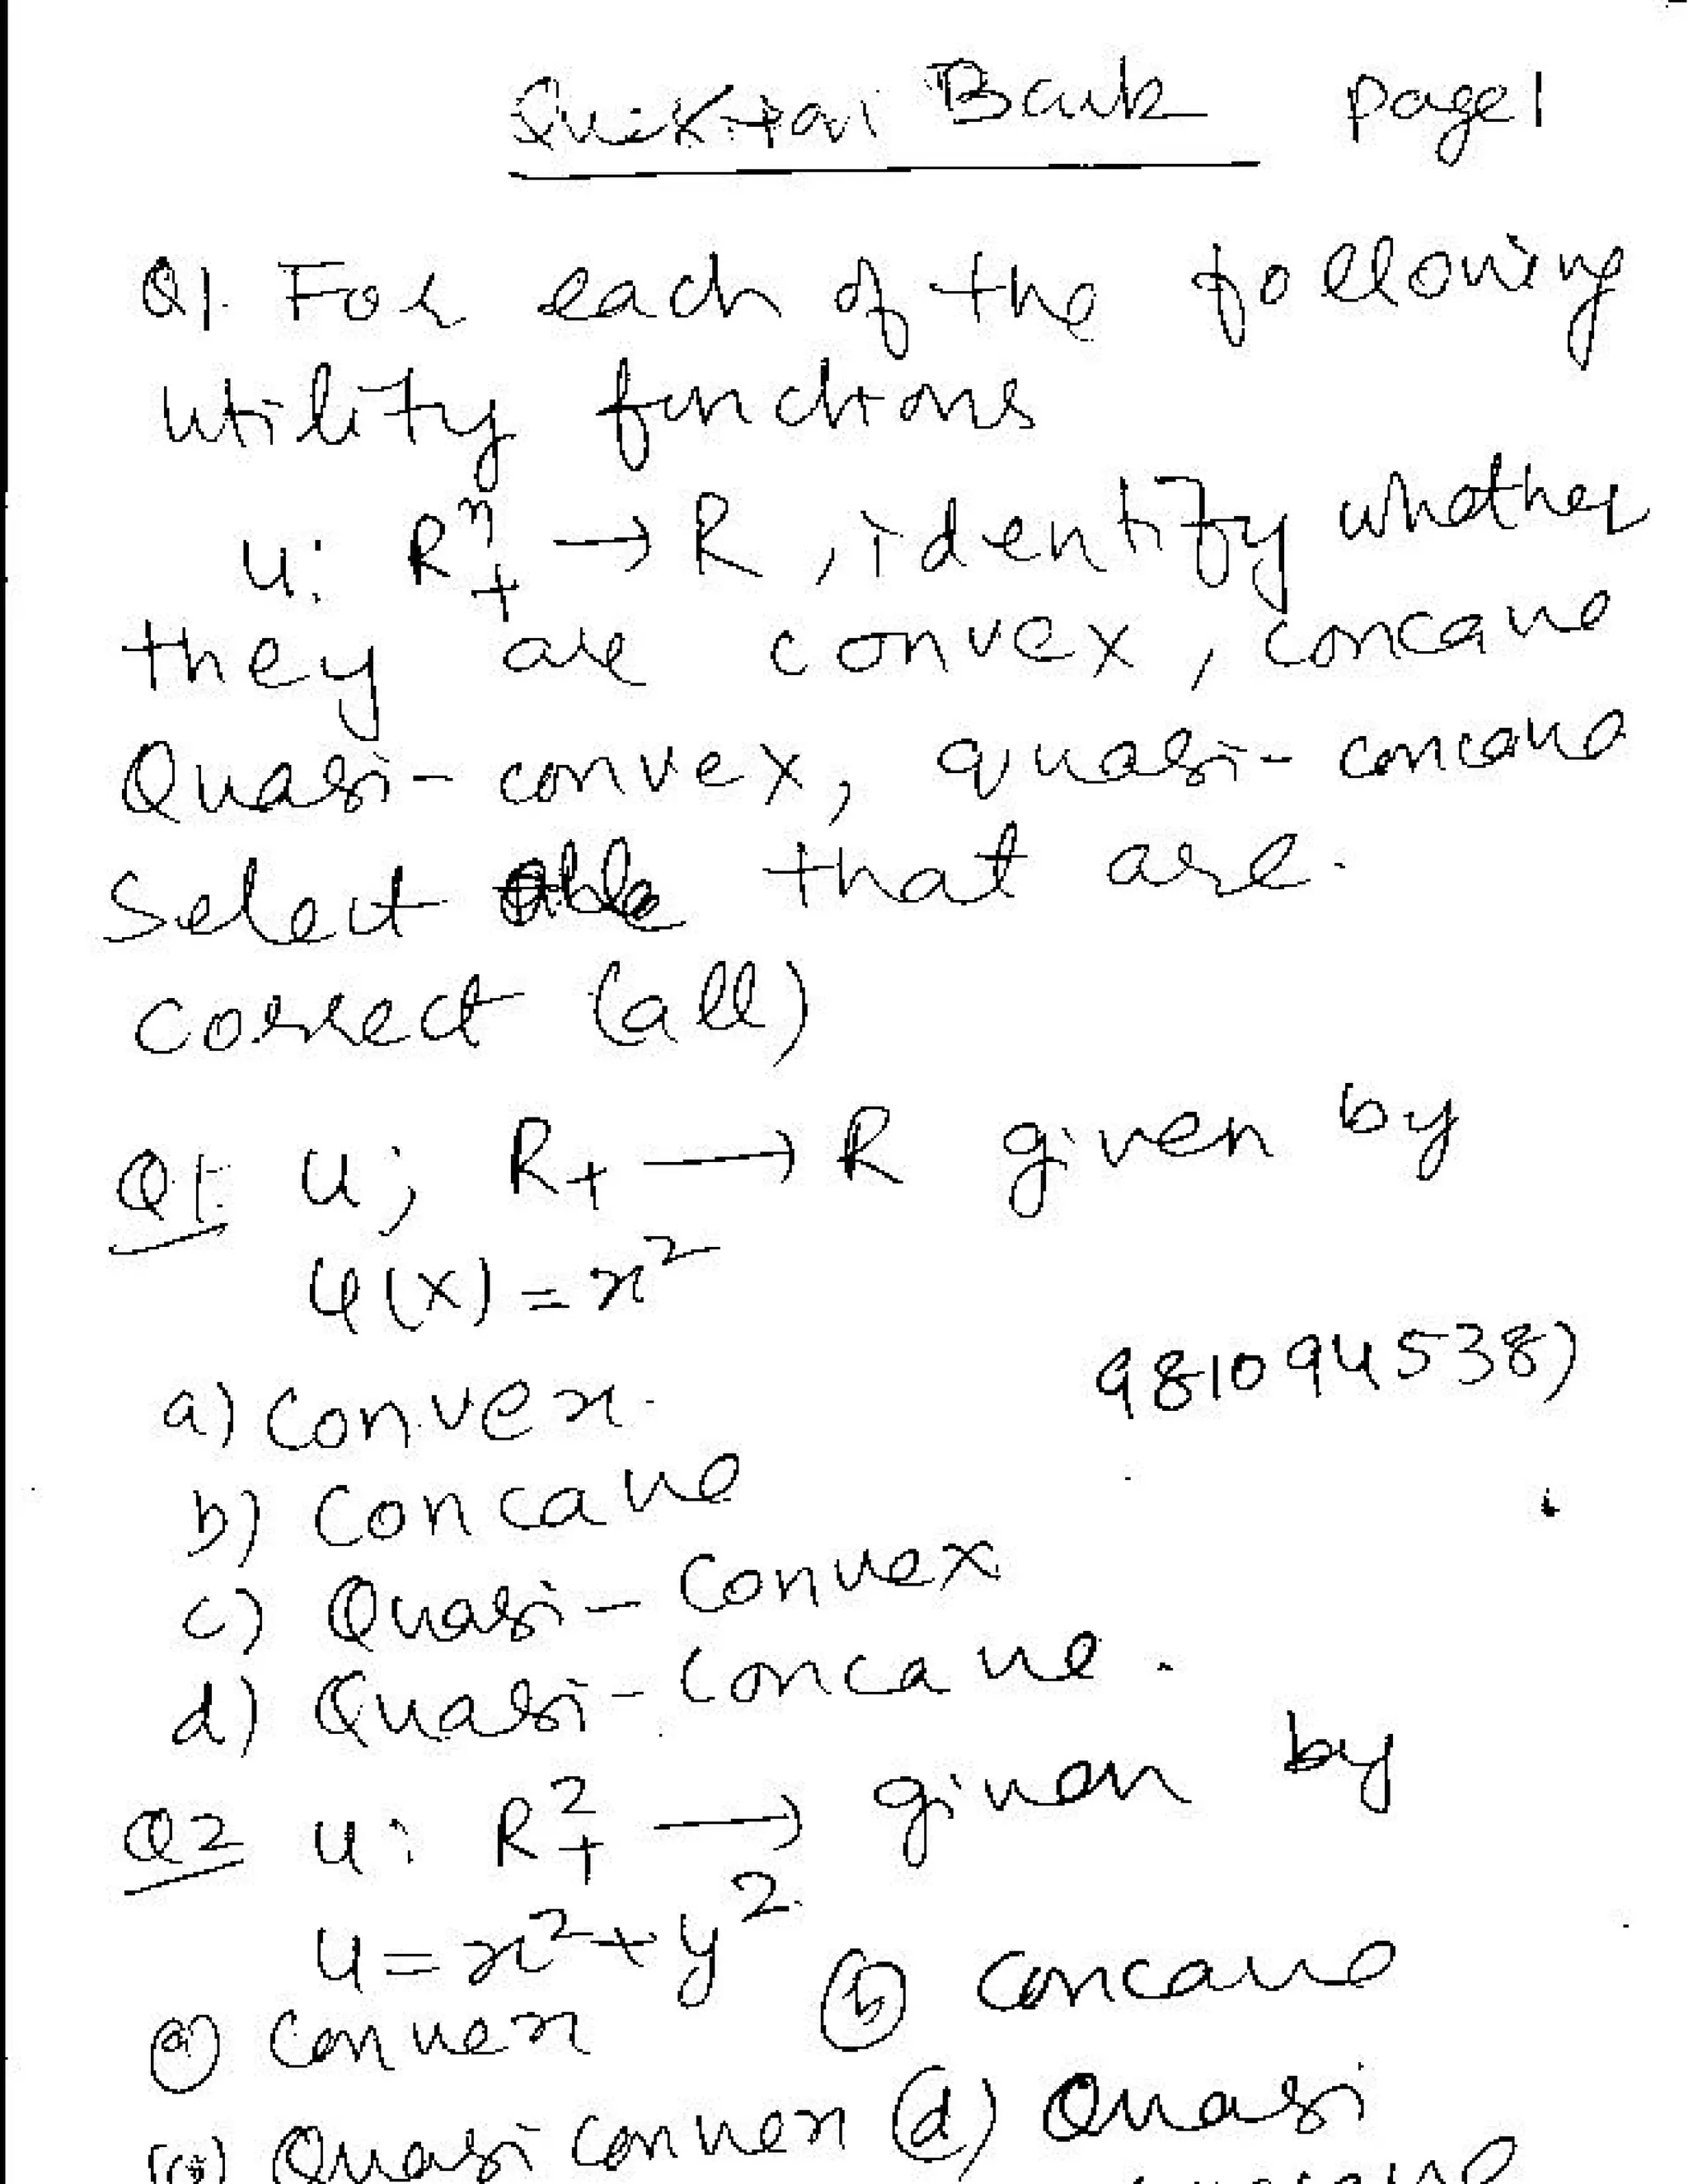 Question Bank Page 1
Q1. For each of the following
utility functions
u: R^n_+ → R, identify whether
they are convex, concave
Quasi-convex, quasi-concave
Select that are.
correct (all)
Q1. u; R_+ → R given by
u(x) = x^2
9810945387
a) Convex.
b) Concave
c) Quasi-Convex
d) Quasi-Concave.
Q2 u: R^2_+ → given by
u = x^2 + y^2
(a) Convex (b) Concave
(c) Quasi convex (d) Quasi